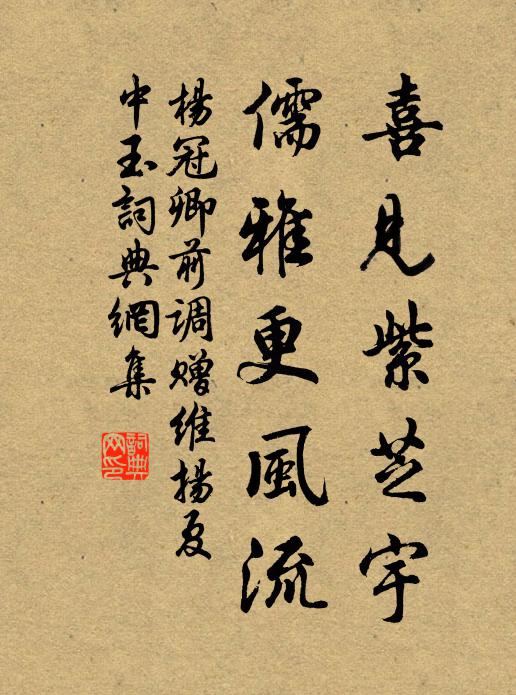 喜見紫芝宇
儒雅更風流
楊冠卿前调贈维揚夏
中玉詞典網集
詞典網印